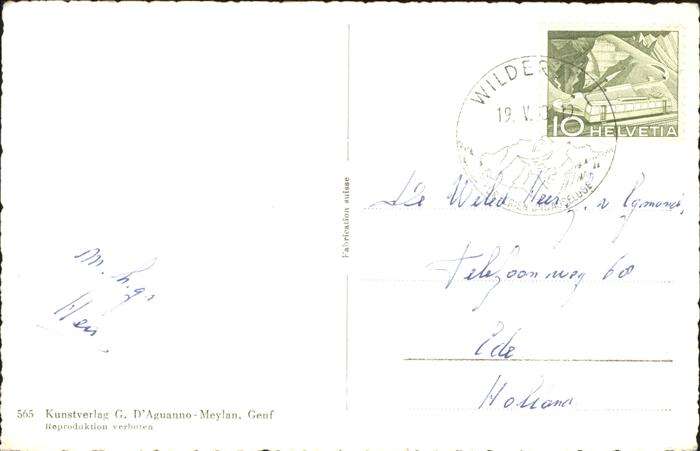 WILDER
19. V.
10 HELVETIA
Fabrication suisse
Wel.ed Heer
Telefoonweg 68
Ede
Holland
m. h. gr.
Hein
565 Kunstverlag G. D'Aguanno-Meylan, Genf
Reproduktion verboten